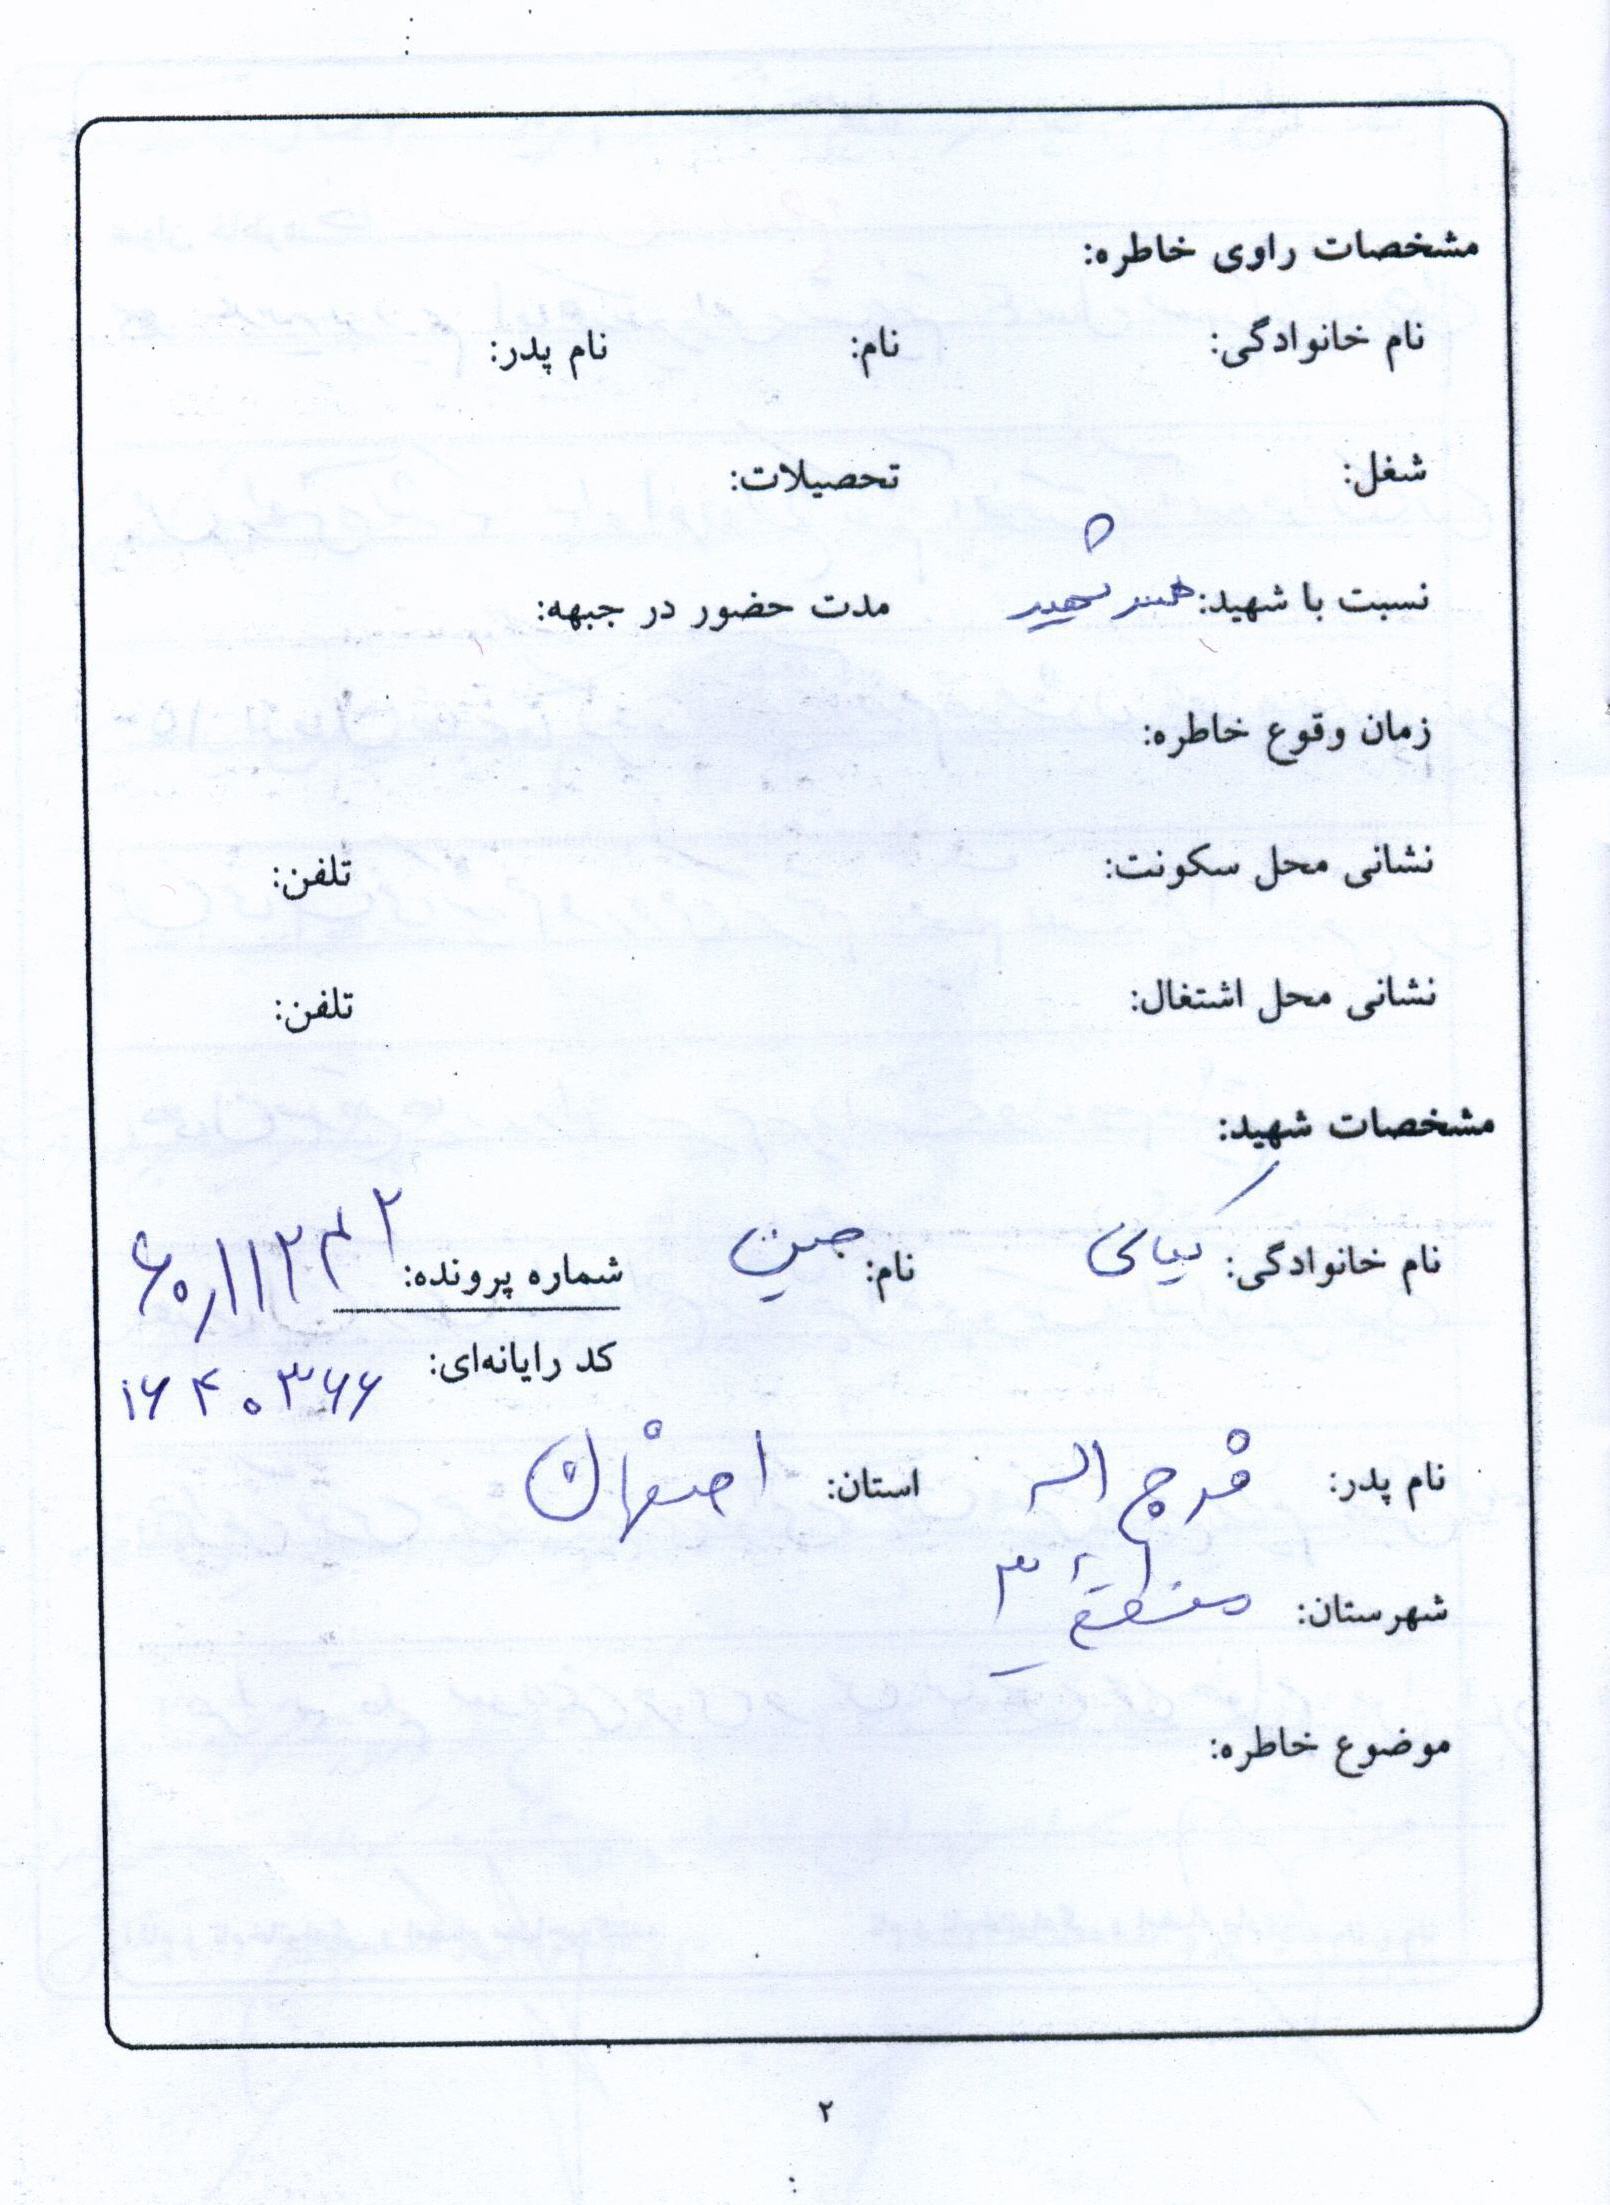 مشخصات راوی خاطره:
نام خانوادگی: نام: نام پدر:
شغل: تحصیلات:
نسبت با شهید: همسر شهید مدت حضور در جبهه:
زمان وقوع خاطره:
نشانی محل سکونت: تلفن:
نشانی محل اشتغال: تلفن:
مشخصات شهید:
نام خانوادگی: کیانی نام: حسین شماره پرونده:
کد رایانه‌ای: ۱۶۴۰۳۶۶
نام پدر: فرج اله استان: اصفهان
شهرستان: منطقه ۳
موضوع خاطره:
۲